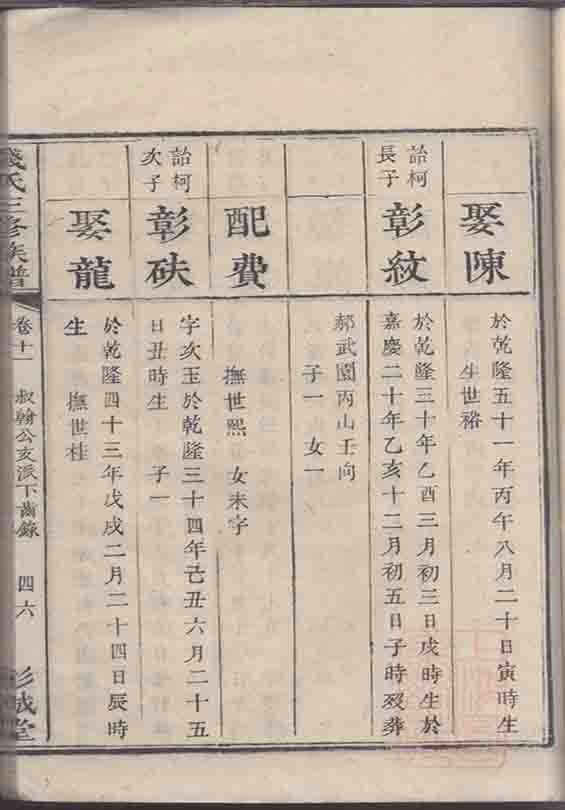 娶陳
於乾隆五十一年丙午八月二十日寅時生
生世裕
詒柯
長子
彰紋
於乾隆三十年乙酉三月初三日戌時生於
嘉慶二十年乙亥十二月初五日子時歿葬
郝武園丙山壬向
子一 女一
配費
撫世熙 女未字
詒柯
次子
彰玞
字次玉於乾隆三十四年己丑六月二十五
日丑時生 子一
娶龍
於乾隆四十三年戊戌二月二十四日辰時
生 撫世桂
錢氏三修族譜
卷十一
叔翰公支派下齒錄
四六
彭城堂